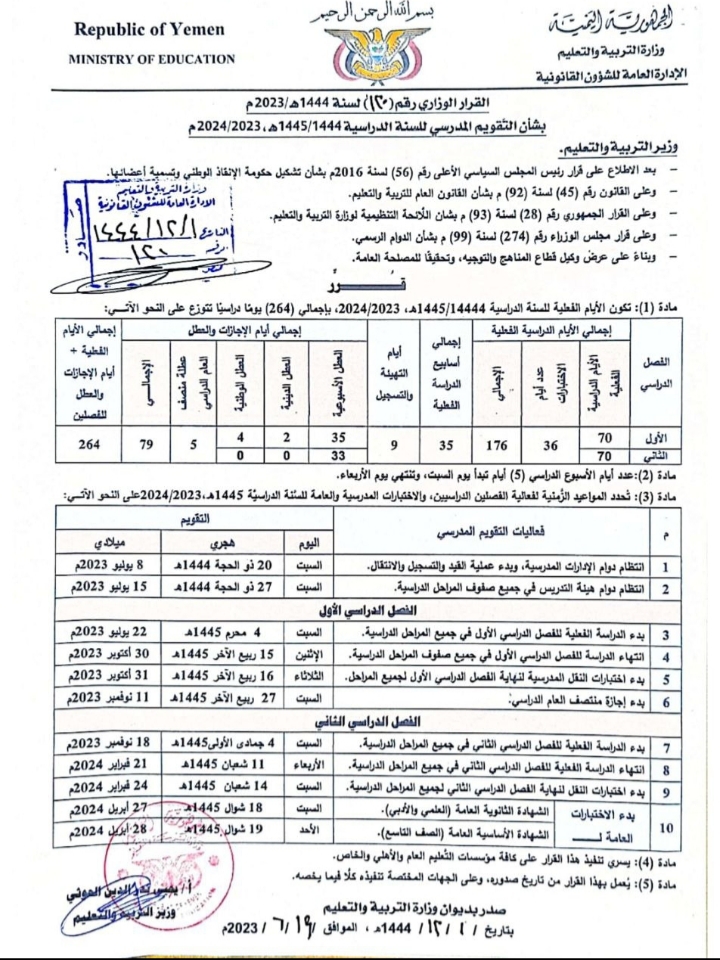 بسم الله الرحمن الرحيم
Republic of Yemen
MINISTRY OF EDUCATION
الجمهورية اليمنية
وزارة التربية والتعليم
الإدارة العامة للشؤون القانونية
القرار الوزاري رقم (١٢٠) لسنة 1444هـ/2023م
بشأن التقويم المدرسي للسنة الدراسية 1445/1444هـ، 2024/2023م
وزير التربية والتعليم.
– بعد الاطلاع على قرار رئيس المجلس السياسي الأعلى رقم (56) لسنة 2016م بشأن تشكيل حكومة الإنقاذ الوطني وتسمية أعضائها.
– وعلى القانون رقم (45) لسنة (92) م بشأن القانون العام للتربية والتعليم.
– وعلى القرار الجمهوري رقم (28) لسنة (93) م بشأن اللائحة التنظيمية لوزارة التربية والتعليم.
– وعلى قرار مجلس الوزراء رقم (274) لسنة (99) م بشأن الدوام الرسمي.
– وبناءً على عرض وكيل قطاع المناهج والتوجيه، وتحقيقًا للمصلحة العامة.
وزارة التربية والتعليم
الإدارة العامة للشئون القانونية
التاريخ ١٤٤٤/١٢/١
رقم ١٢٠
صادر
قـــرَّر
مادة (1): تكون الأيام الفعلية للسنة الدراسية 1445/14444هـ، 2024/2023، بإجمالي (264) يومًا دراسيًا تتوزع على النحو الآتـي:
الفصل الدراسي
إجمالي الأيام الدراسية الفعلية
الأيام الدراسية الفعلية
عدد أيام الاختبارات
الإجمالي
إجمالي أسابيع الدراسة الفعلية
أيام التهيئة والتسجيل
إجمالي أيام الإجازات والعطل
العطل الأسبوعية
العطل الدينية
العطل الوطنية
عطلة منتصف العام الدراسي
الإجمالـي
إجمالي الأيام الفعلية + أيام الإجازات والعطل للفصلين
الأول 70 36 176 35 9 35 2 4 5 79 264
الثاني 70 33 0 0
مادة (2): عدد أيام الأسبوع الدراسي (5) أيام تبدأ يوم السبت، وتنتهي يوم الأربعاء.
مادة (3): تُحدد المواعيد الزَّمنية لفعالية الفصلين الدراسيين، والاختبارات المدرسية والعامة للسَّنة الدراسيَّة 1445هـ،2024/2023على النحو الآتـي:
م فعاليات التقويم المدرسي التقويم
اليوم هجري ميلادي
1 انتظام دوام الإدارات المدرسية، وبدء عملية القيد والتسجيل والانتقال. السبت 20 ذو الحجة 1444هـ 8 يوليو 2023م
2 انتظام دوام هيئة التدريس في جميع صفوف المراحل الدراسية. السبت 27 ذو الحجة 1444هـ 15 يوليو 2023م
الفصل الدراسي الأول
3 بدء الدراسة الفعلية للفصل الدراسي الأول في جميع المراحل الدراسية. السبت 4 محرم 1445هـ 22 يوليو 2023م
4 انتهاء الدراسة للفصل الدراسي الأول في جميع صفوف المراحل الدراسية. الإثنين 15 ربيع الآخر 1445هـ 30 أكتوبر 2023م
5 بدء اختبارات النقل المدرسية لنهاية الفصل الدراسي الأول لجميع المراحل. الثلاثاء 16 ربيع الآخر 1445هـ 31 أكتوبر 2023م
6 بدء إجازة منتصف العام الدراسي. السبت 27 ربيع الآخر 1445هـ 11 نوفمبر 2023م
الفصل الدراسي الثاني
7 بدء الدراسة الفعلية للفصل الدراسي الثاني في جميع المراحل الدراسية. السبت 4 جمادى الأولى1445هـ 18 نوفمبر 2023م
8 انتهاء الدراسة الفعلية للفصل الدراسي الثاني في جميع المراحل الدراسية. الأربعاء 11 شعبان 1445هـ 21 فبراير 2024م
9 بدء اختبارات النقل لنهاية الفصل الدراسي الثاني لجميع المراحل الدراسية. السبت 14 شعبان 1445هـ 24 فبراير 2024م
10 بدء الاختبارات العامة لـــ الشهادة الثانوية العامة (العلمي والأدبي). السبت 18 شوال 1445هـ 27 أبريل 2024م
الشهادة الأساسية العامة (الصف التاسع). الأحد 19 شوال 1445هـ 28 أبريل 2024م
مادة (4): يسري تنفيذ هذا القرار على كافة مؤسسات التَّعليم العام والأهلي والخاص.
مادة (5): يُعمل بهذا القرار من تاريخ صدوره، وعلى الجهات المختصة تنفيذه كلًا فيما يخصه.
صدر بديوان وزارة التربية والتعليم
بتاريخ ١ / ١٢ / 1444هـ ، الموافق ١٩/ ٦ / 2023م
أ / يحيى بدر الدين الحوثي
وزير التربية والتعليم